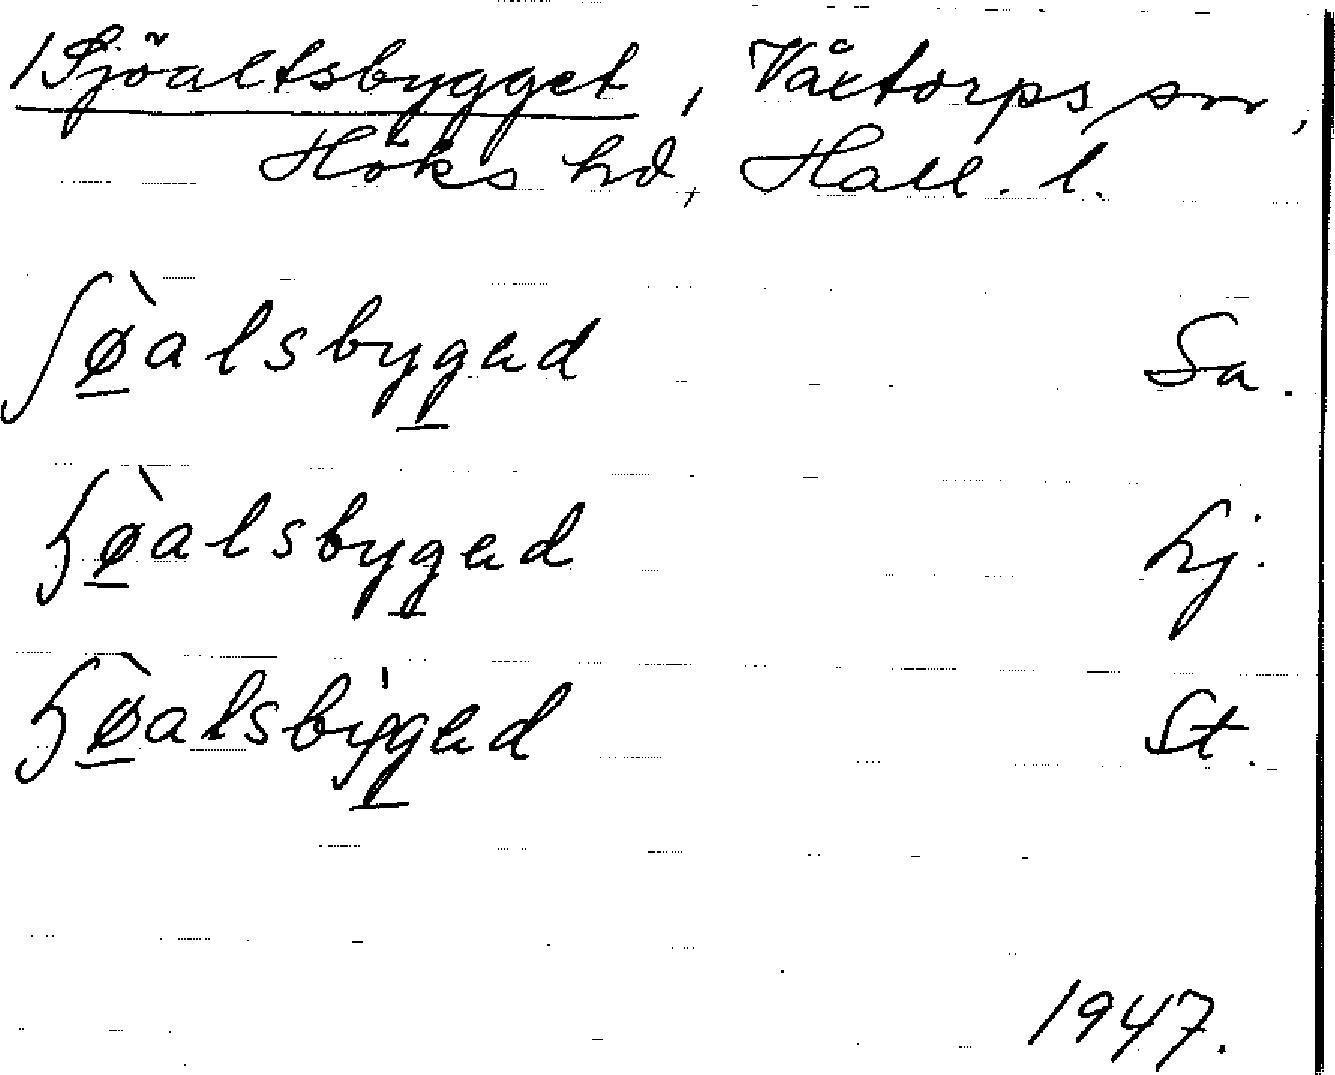 /Sjöaltsbygget, Våxtorps sn,
Höks hd, Hall. l.
ʃø̠̀alsbyg̠ed Sa.
ɧø̠̀alsbyg̠ed hj.
ɧø̠̀alsbýg̠ed St.
1947.